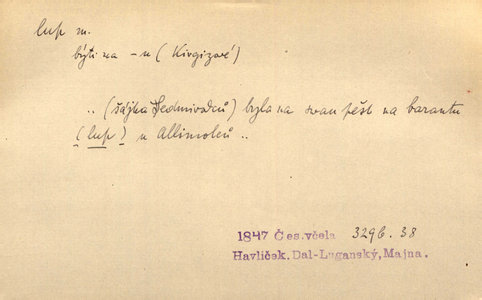 lup m.
býti na -u (Kirgizové)
.. (šájka Sedmivodců) byla na svou pěst na barantu
(lup) u Allimolců ..
1847 Čes.včela 329b. 38
Havlíček. Dal-Luganský, Majna.